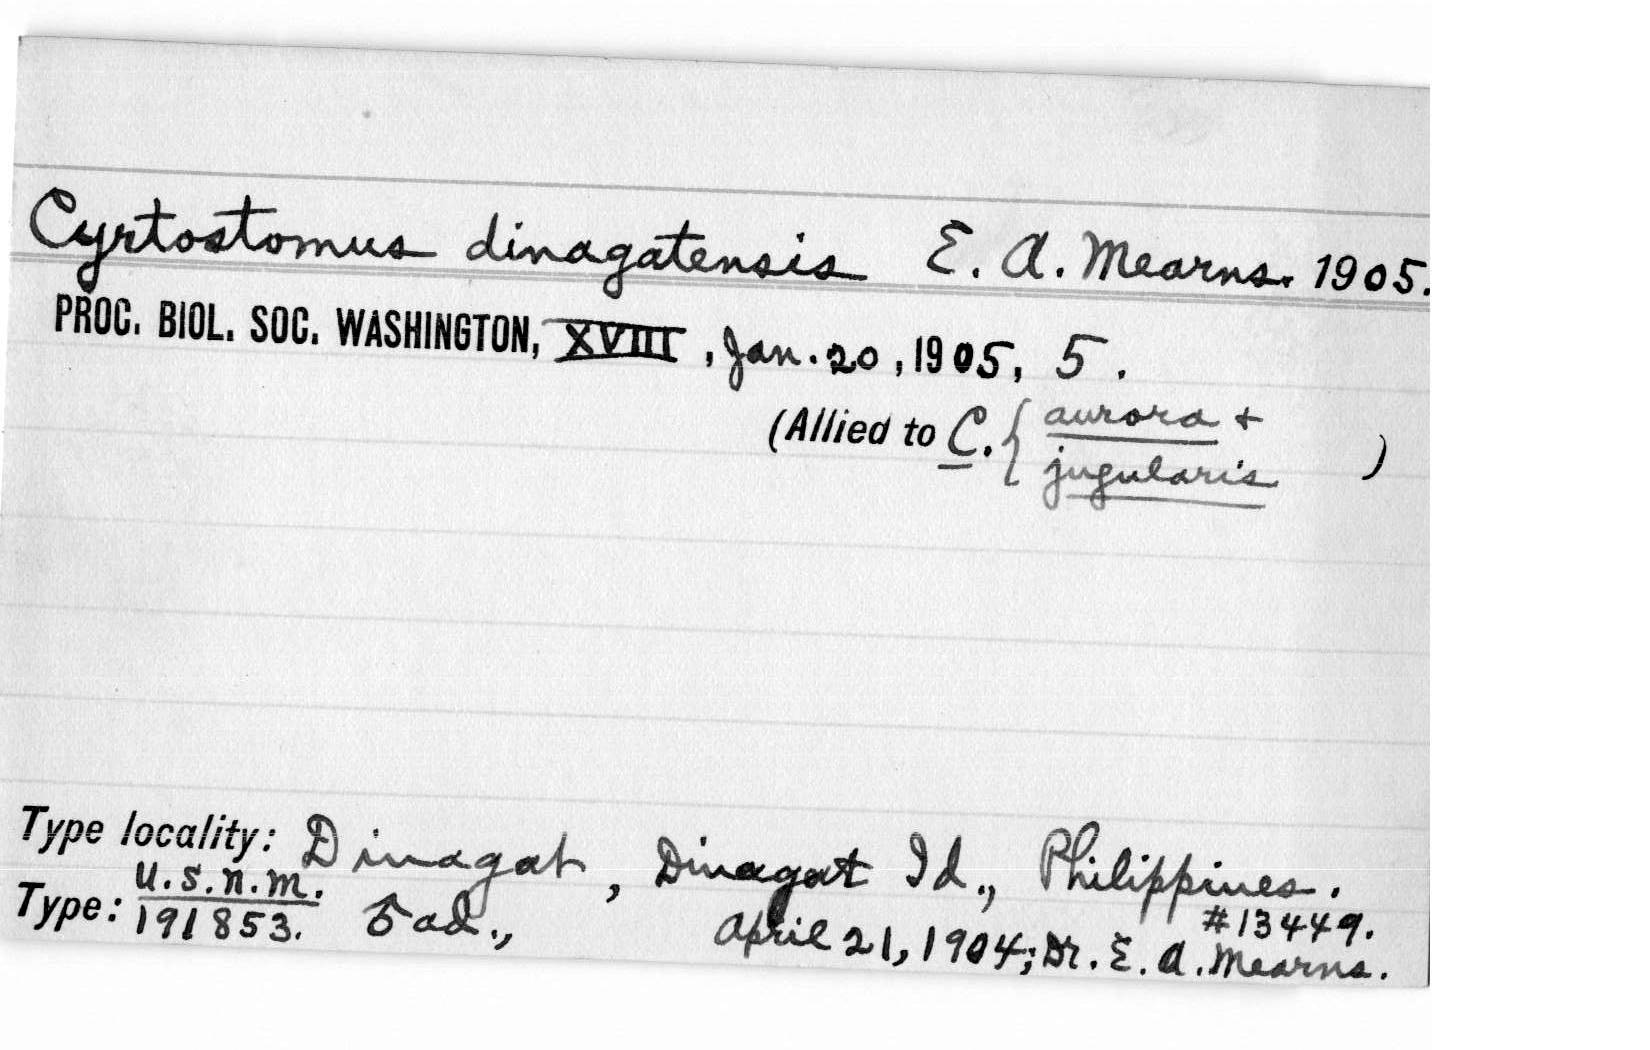 Cyrtostomus dinagatensis E. A. Mearns. 1905.
PROC. BIOL. SOC. WASHINGTON, XVIII, Jan. 20, 1905, 5.
(Allied to C. { aurora +
jugularis )
Type locality: Dinagat, Dinagat Id., Philippines.
U.S.N.M. #13449.
Type: 191853. ♂ ad., April 21, 1904; Dr. E. A. Mearns.